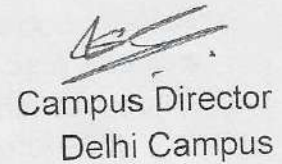 Campus Director
Delhi Campus